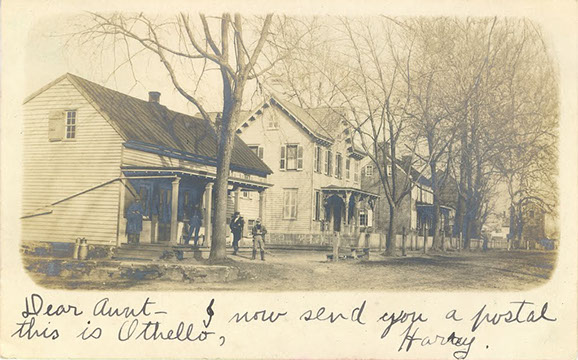 Dear Aunt - I now send you a postal
this is Othello, Harry.